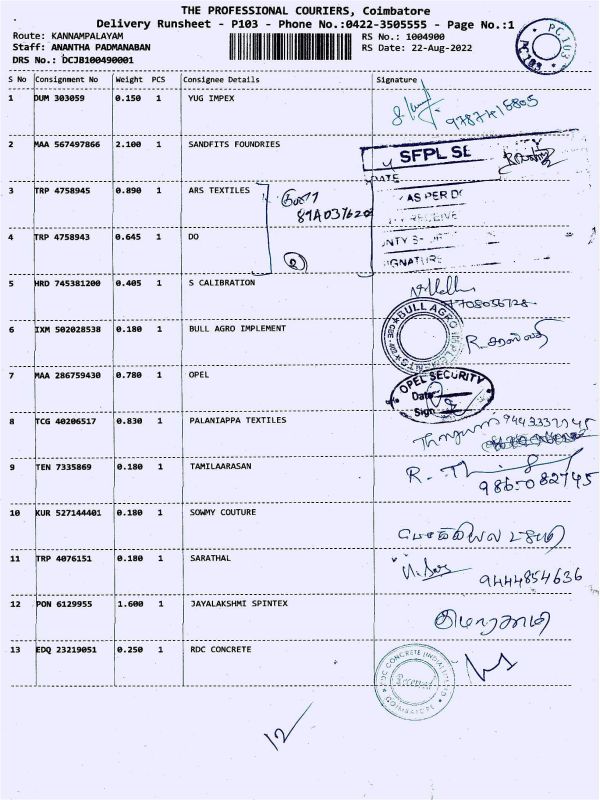 THE PROFESSIONAL COURIERS, Coimbatore
Delivery Runsheet - P103 - Phone No.:0422-3505555 - Page No.:1
Route: KANNAMPALAYAM
RS No.: 1004900
Staff: ANANTHA PADMANABAN
RS Date: 22-Aug-2022
DRS No.: DCJB100490001
PC 103
PC 103
S No Consignment No Weight PCS Consignee Details Signature
1 DUM 303059 0.150 1 YUG IMPEX
2 MAA 567497866 2.100 1 SANDFITS FOUNDRIES
SFPL SE
DATE
3 TRP 4758945 0.890 1 ARS TEXTILES
AS PER
RECEIVE
4 TRP 4758943 0.645 1 DO
2
SIGNATURE
5 HRD 745381200 0.405 1 S CALIBRATION
7708056728
6 IXM 502028538 0.180 1 BULL AGRO IMPLEMENT
BULL AGRO
7 MAA 286759430 0.780 1 OPEL
OPEL SECURITY
Date
Sign
8 TCG 40206517 0.830 1 PALANIAPPA TEXTILES
9 TEN 7335869 0.180 1 TAMILAARASAN
9865082745
10 KUR 527144401 0.180 1 SOWMY COUTURE
11 TRP 4076151 0.180 1 SARATHAL
9444854636
12 PON 6129955 1.600 1 JAYALAKSHMI SPINTEX
13 EDQ 23219051 0.250 1 RDC CONCRETE
RDC CONCRETE (INDIA) LIMITED
Received
COIMBATORE
12